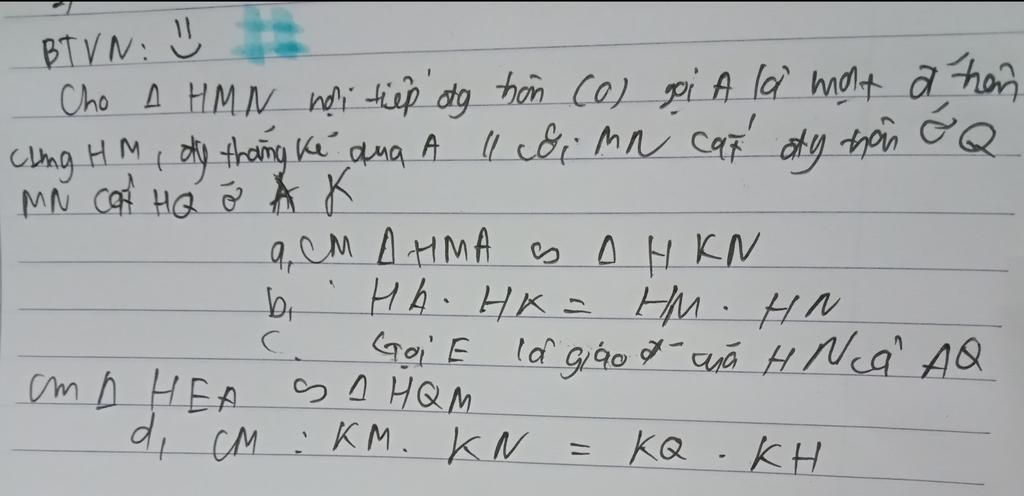 BTVN:
Cho Δ HMN nội tiếp đg tròn (O) gọi A là một đ' trên
cung HM, đg thẳng kẻ qua A // với MN cắt đg tròn ở Q
MN cắt HQ ở K
a, CM Δ HMA ∽ Δ HKN
b, HA. HK = HM. HN
c. Gọi E là giao đ' của HN và AQ
Cm Δ HEA ∽ Δ HQM
d, CM : KM. KN = KQ . KH